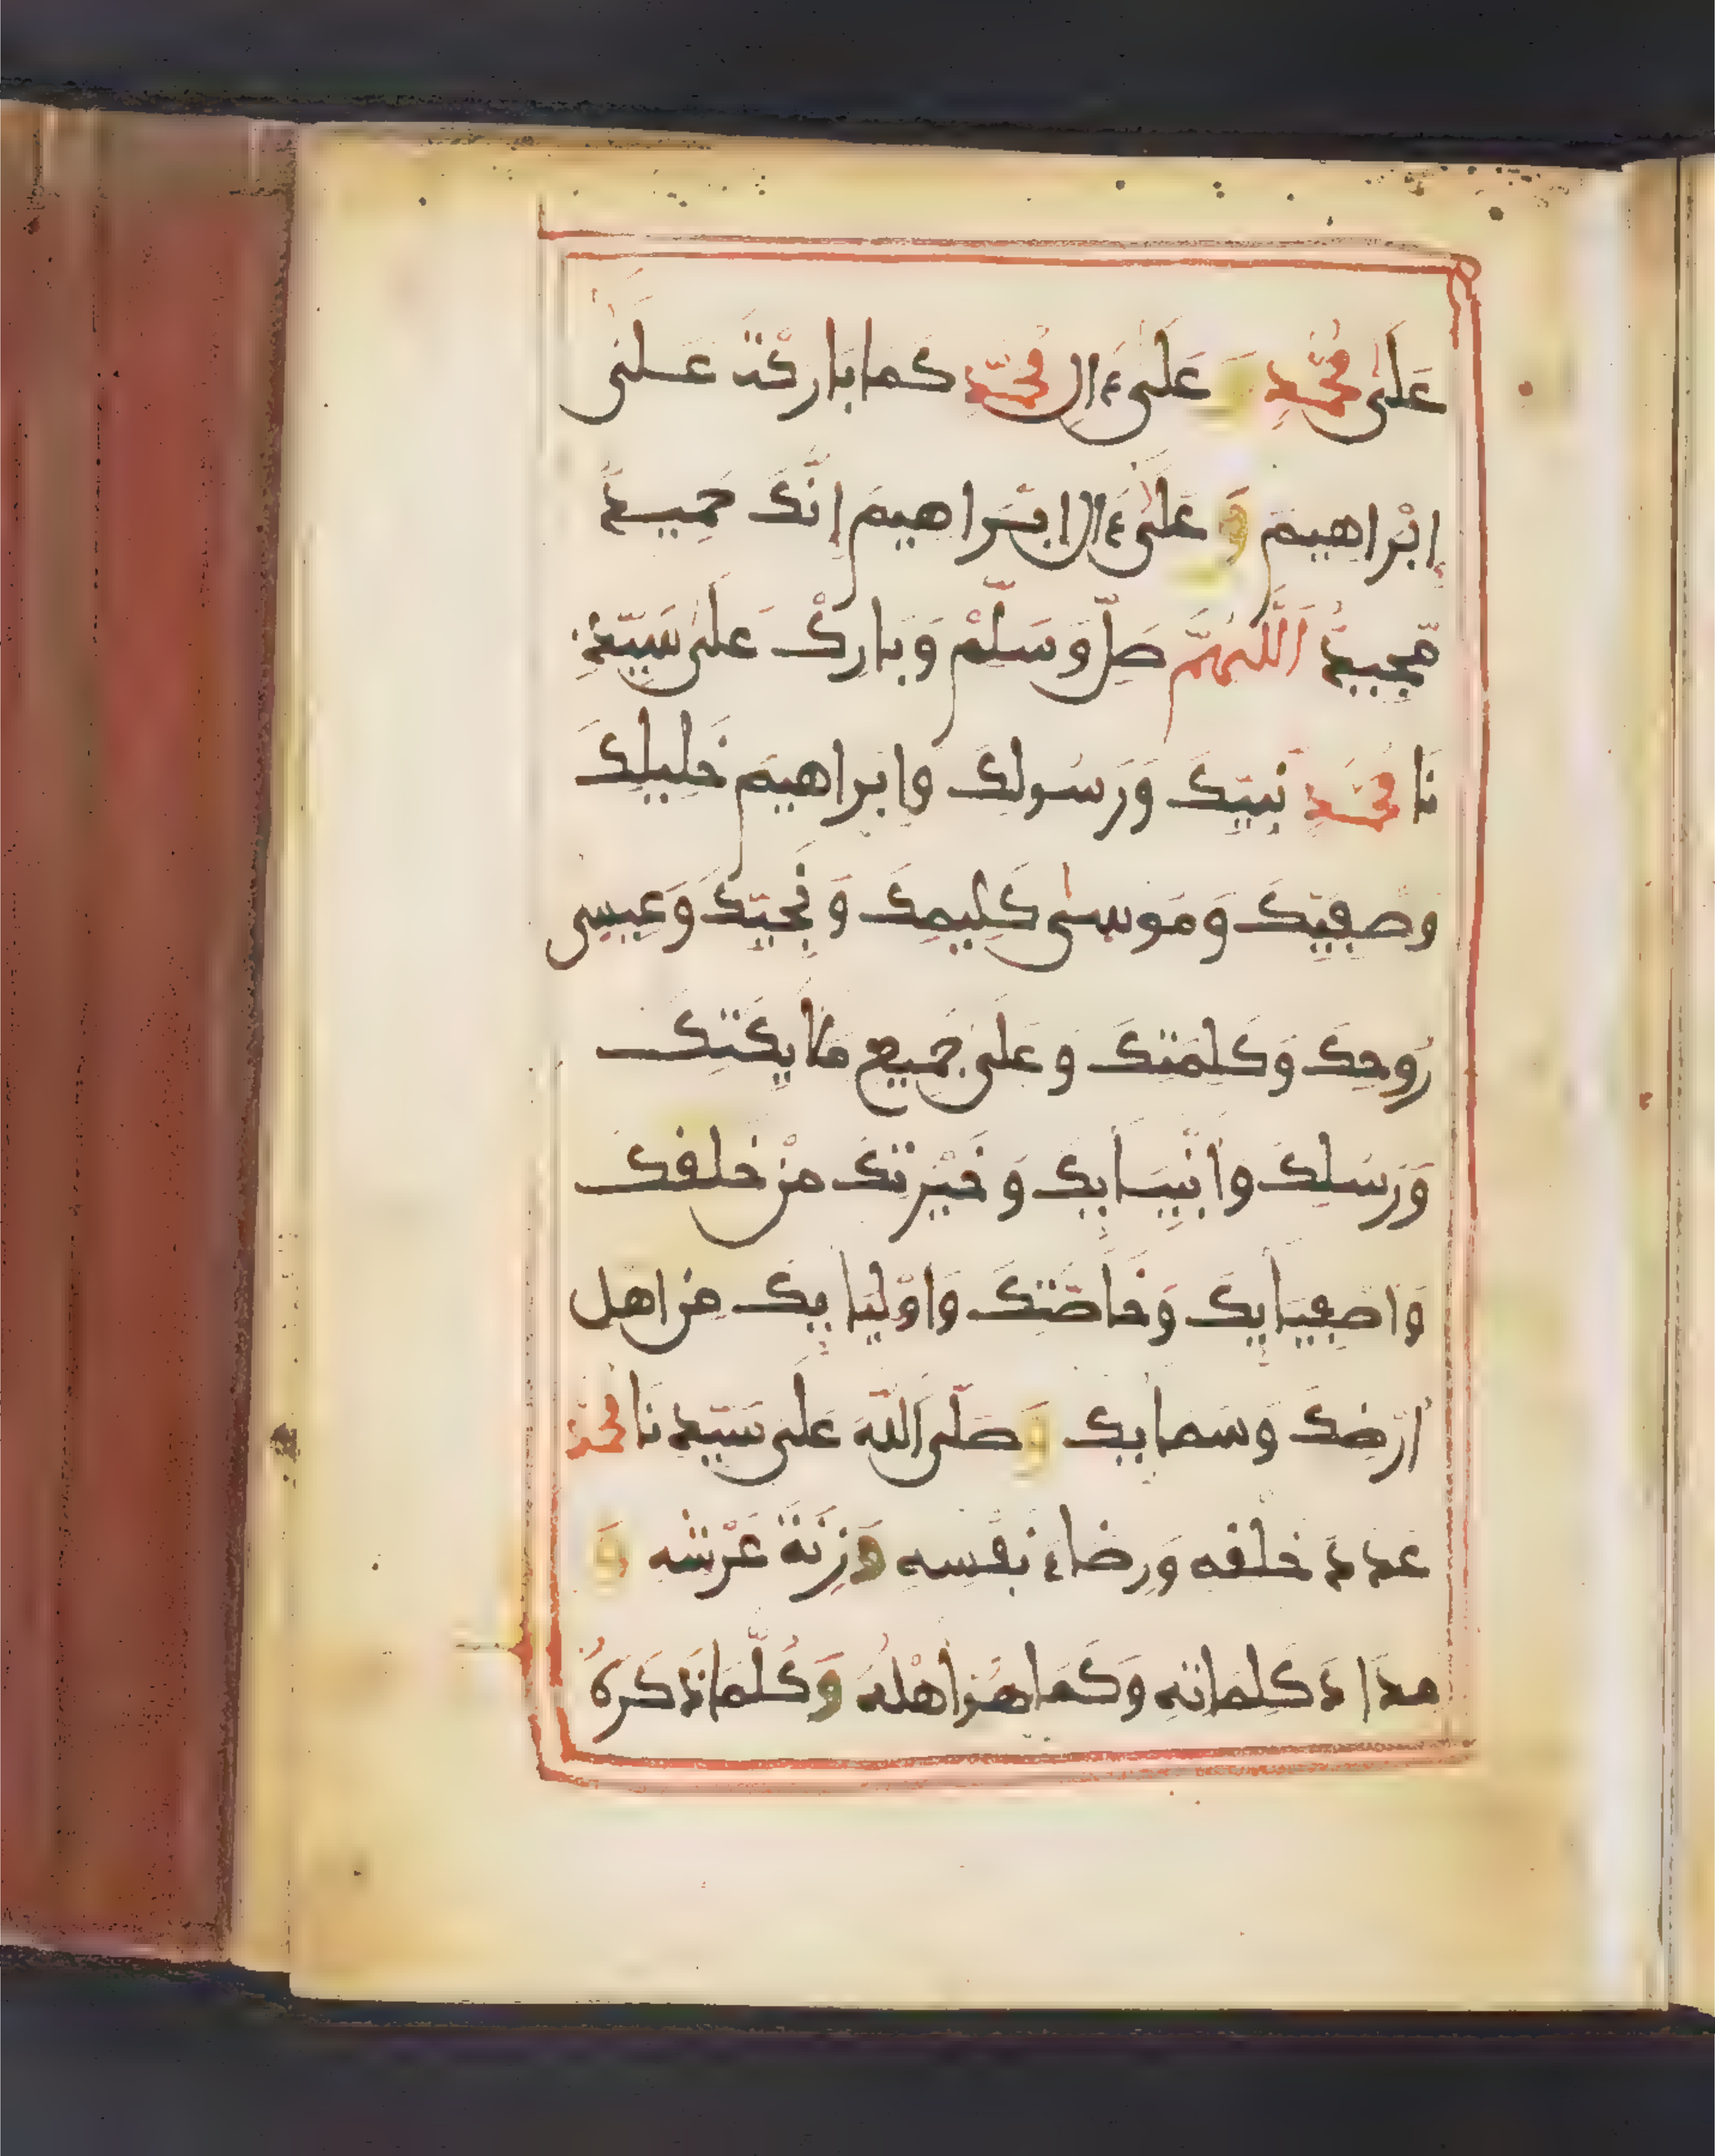 عَلَىٰ مُحَمَّدٍ وَعَلَىٰ ءَالِ مُحَمَّدٍ كَمَا بَارَكْتَ عَلَىٰ
إِبْرَاهِيمَ وَعَلَىٰ ءَالِ ابْرَاهِيمَ إِنَّكَ حَمِيدٌ
مَّجِيدٌ اَللَّهُمَّ صَلِّ وَسَلِّمْ وَبَارِكْ عَلَىٰ سَيِّدِ
نَا مُحَمَّدٍ نَبِيِّكَ وَرَسُولِكَ وَابْرَاهِيمَ خَلِيلِكَ
وَصَفِيِّكَ وَمُوسَىٰ كَلِيمِكَ وَنَجِيِّكَ وَعِيسَى
رُوحِكَ وَكَلِمَتِكَ وَعَلَى جَمِيعِ مَلَايِكَتِكَ
وَرُسُلِكَ وَأَنْبِيَايِكَ وَخِيْرَتِكَ مِنْ خَلْقِكَ
وَأَصْفِيَايِكَ وَخَاصَّتِكَ وَأَوْلِيَايِكَ مِنْ اهْلِ
أَرْضِكَ وَسَمَايِكَ وَصَلَّى اللَّهُ عَلَى سَيِّدِنَا مُحَمَّدٍ
عَدَدَ خَلْقِهِ وَرِضَاءَ نَفْسِهِ وَزِنَةَ عَرْشِهِ وَ
مِدَادَ كَلِمَاتِهِ وَكَمَا هُوَ أَهْلُهُ وَكُلَّمَا ذَكَرَهُ